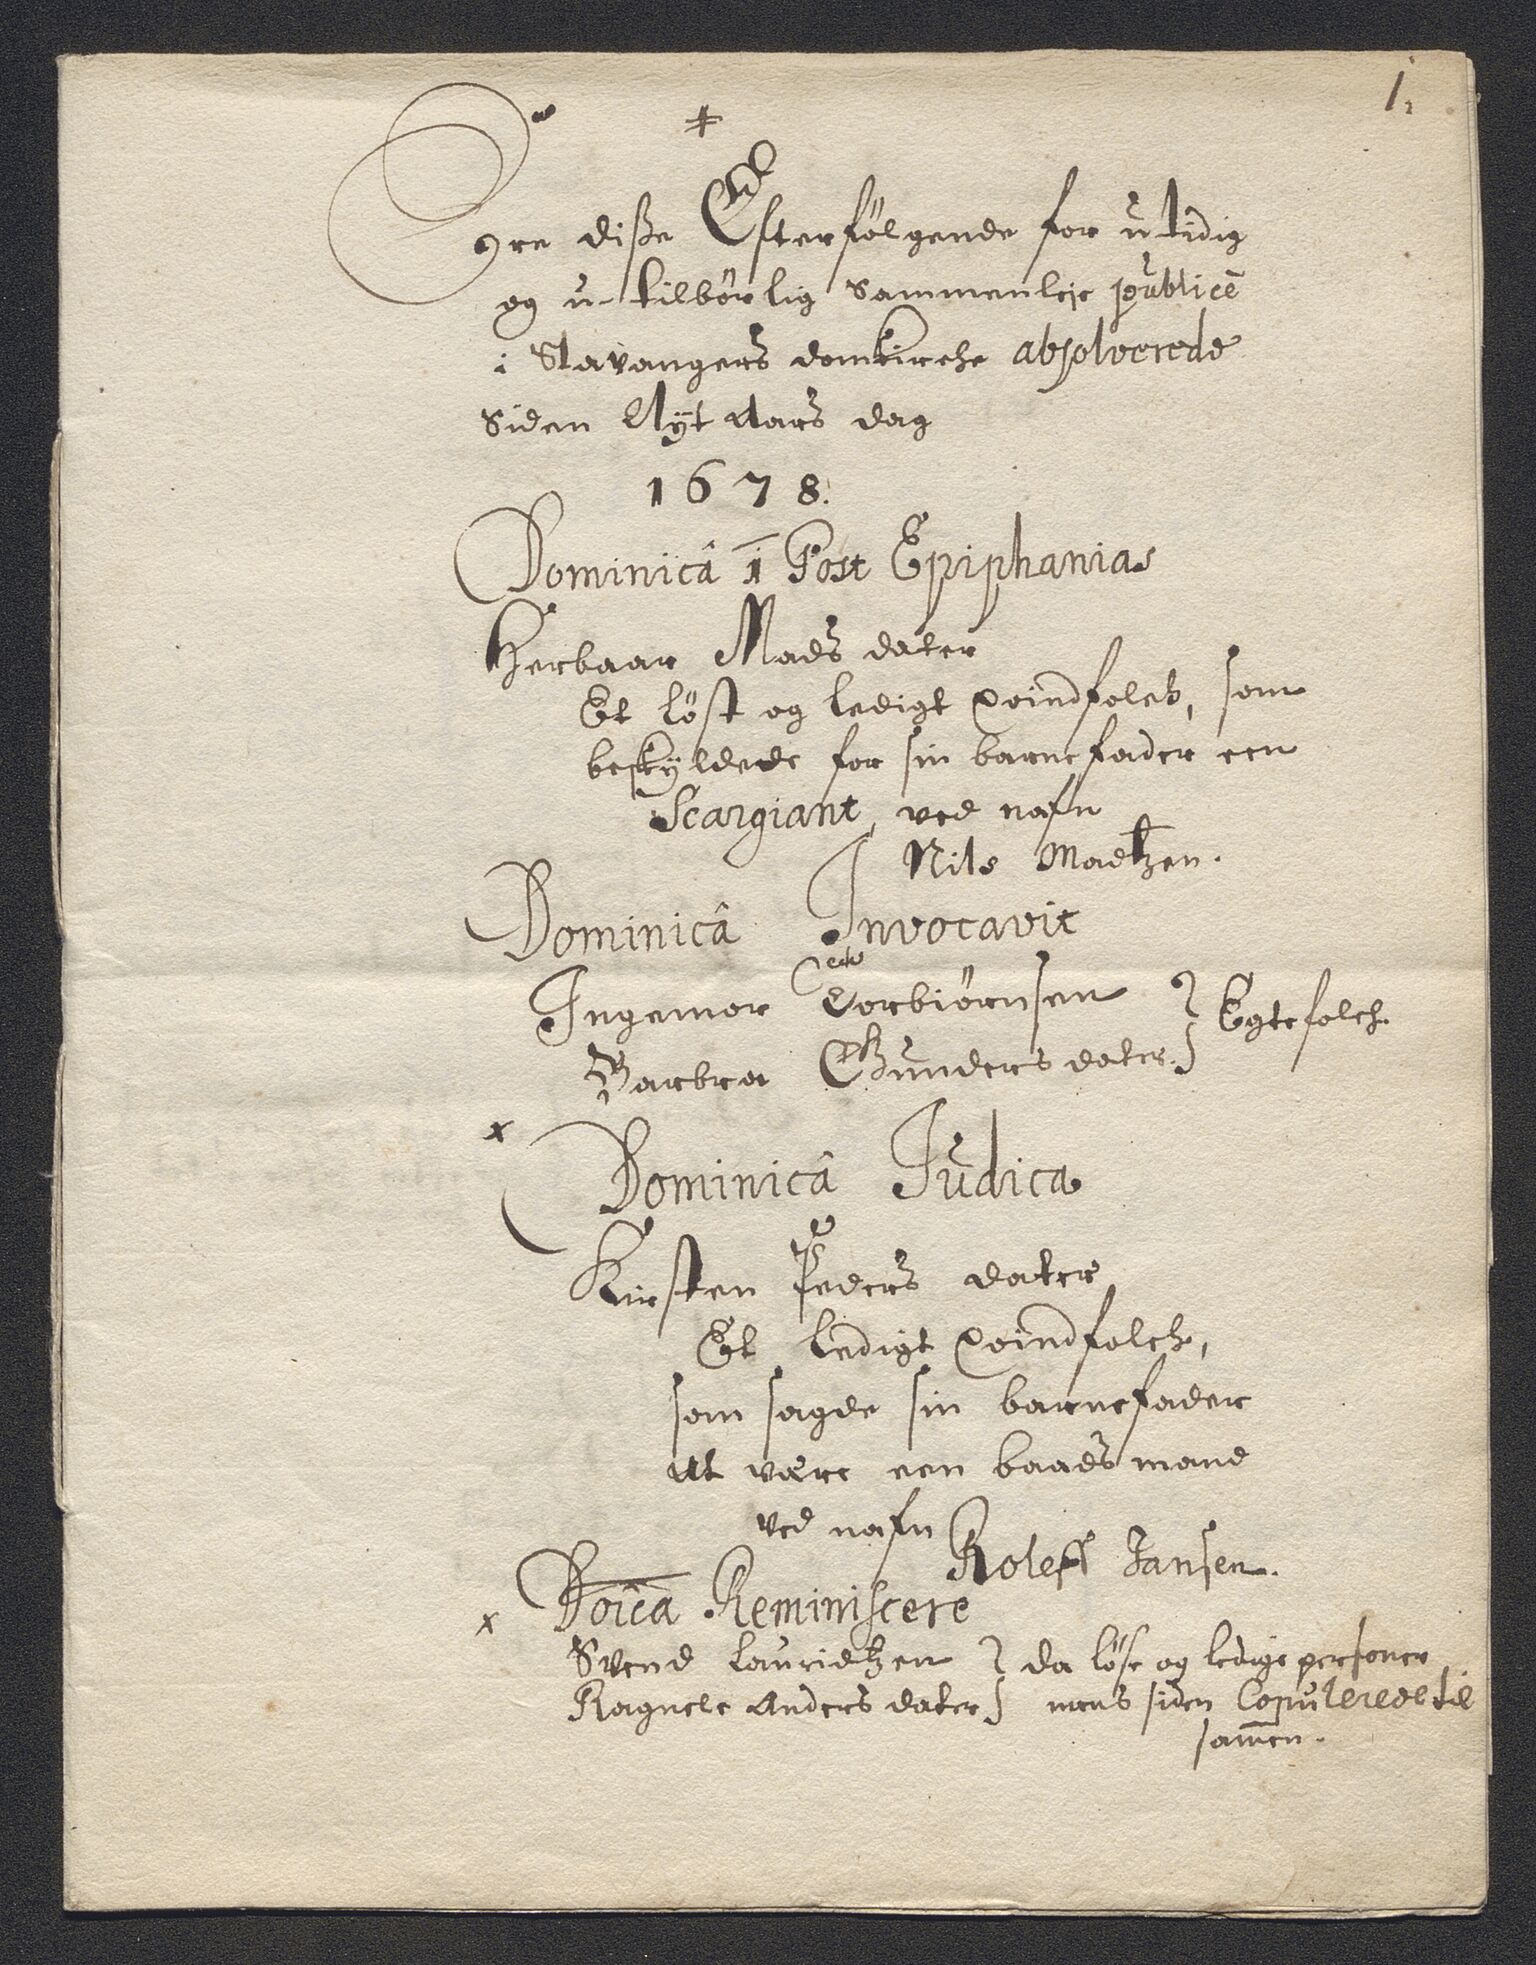 1.
Ere diße Efterfölgende for utidig
og u-tilbörlig Sammenleje publicè
i Stavangers domkirche absolverede
Siden Nyt Aars dag
1678.
Dominicâ 1 Post Epiphanias
Herbaar Mads dater
Et löst og ledigt qvindfolch, som
beskyldede for sin barnefader een
Scargiant, ved nafn
Nils Madtzen.
Dominicâ Invocavit
Ingemor Torbiörnsen
Barbra Gunders dater } Egtefolch
x
Dominicâ Judica
Kirsten Peders dater
Et ledigt qvindfolch,
som sagde sin barnefader
at være een baadsmand
ved nafn
Roleff Jansen.
x Doîca Reminiscere
Svend Lauridtzen } da löse og ledige personer
Ragnele Anders dater } mens siden Copuleredt til
samen.